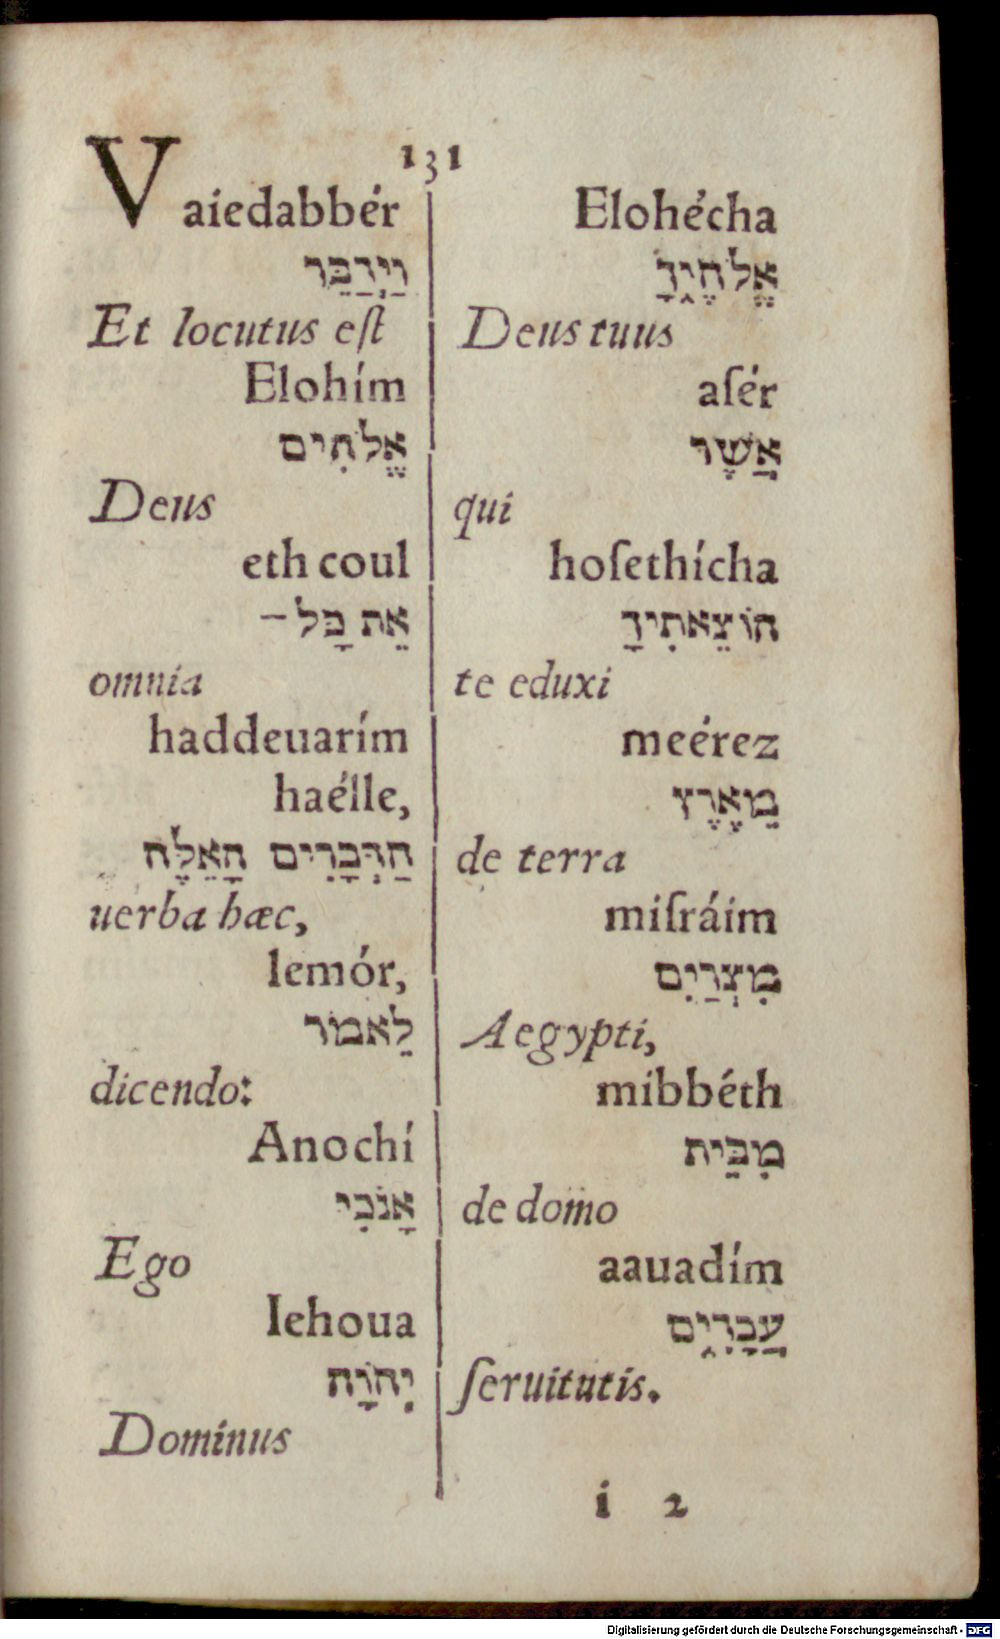 131
Vaiedabbér
וַיְדַבֵּר
Et locutus eſt
Elohím
אֱלֹהִים
Deus
eth coul
אֵת כָּל־
omnia
haddeuarím
haélle,
הַדְּבָרִים הָאֵלֶּה
uerba hæc,
lemór,
לֵאמֹר
dicendo:
Anochí
אָנֹכִי
Ego
Iehoua
יְהֹוָה
Dominus
Elohécha
אֱלֹהֶיךָ
Deus tuus
aſér
אֲשֶׁר
qui
hoſethícha
הוֹצֵאתִיךָ
te eduxi
meérez
מֵאֶרֶץ
de terra
miſráim
מִצְרַיִם
Aegypti,
mibbéth
מִבֵּית
de domo
aauadím
עֲבָדִים
ſeruitutis.
i 2
Digitalisierung gefördert durch die Deutsche Forschungsgemeinschaft - DFG